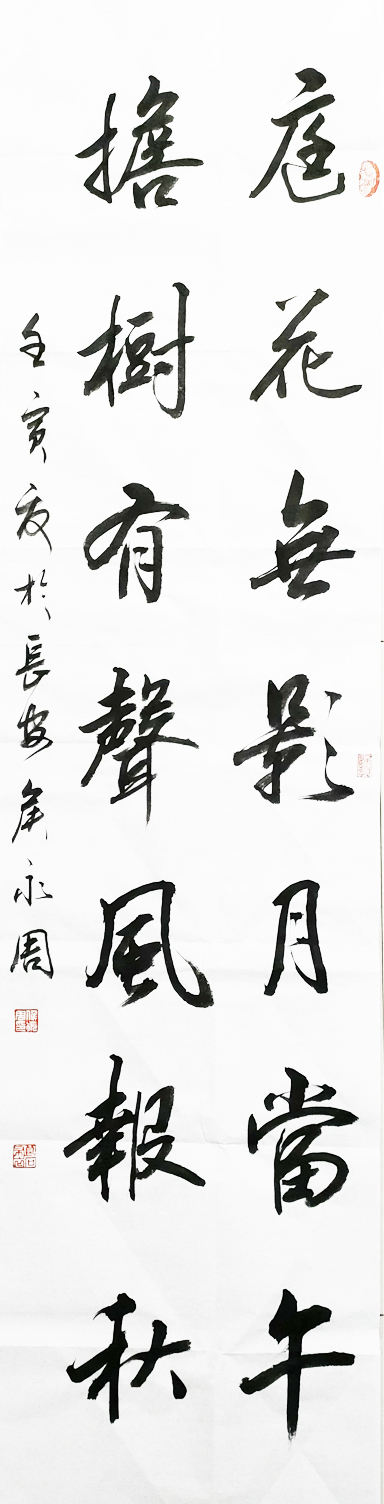 庭花無影月當午
檐樹有聲風報秋
壬寅夏於長安侯永周